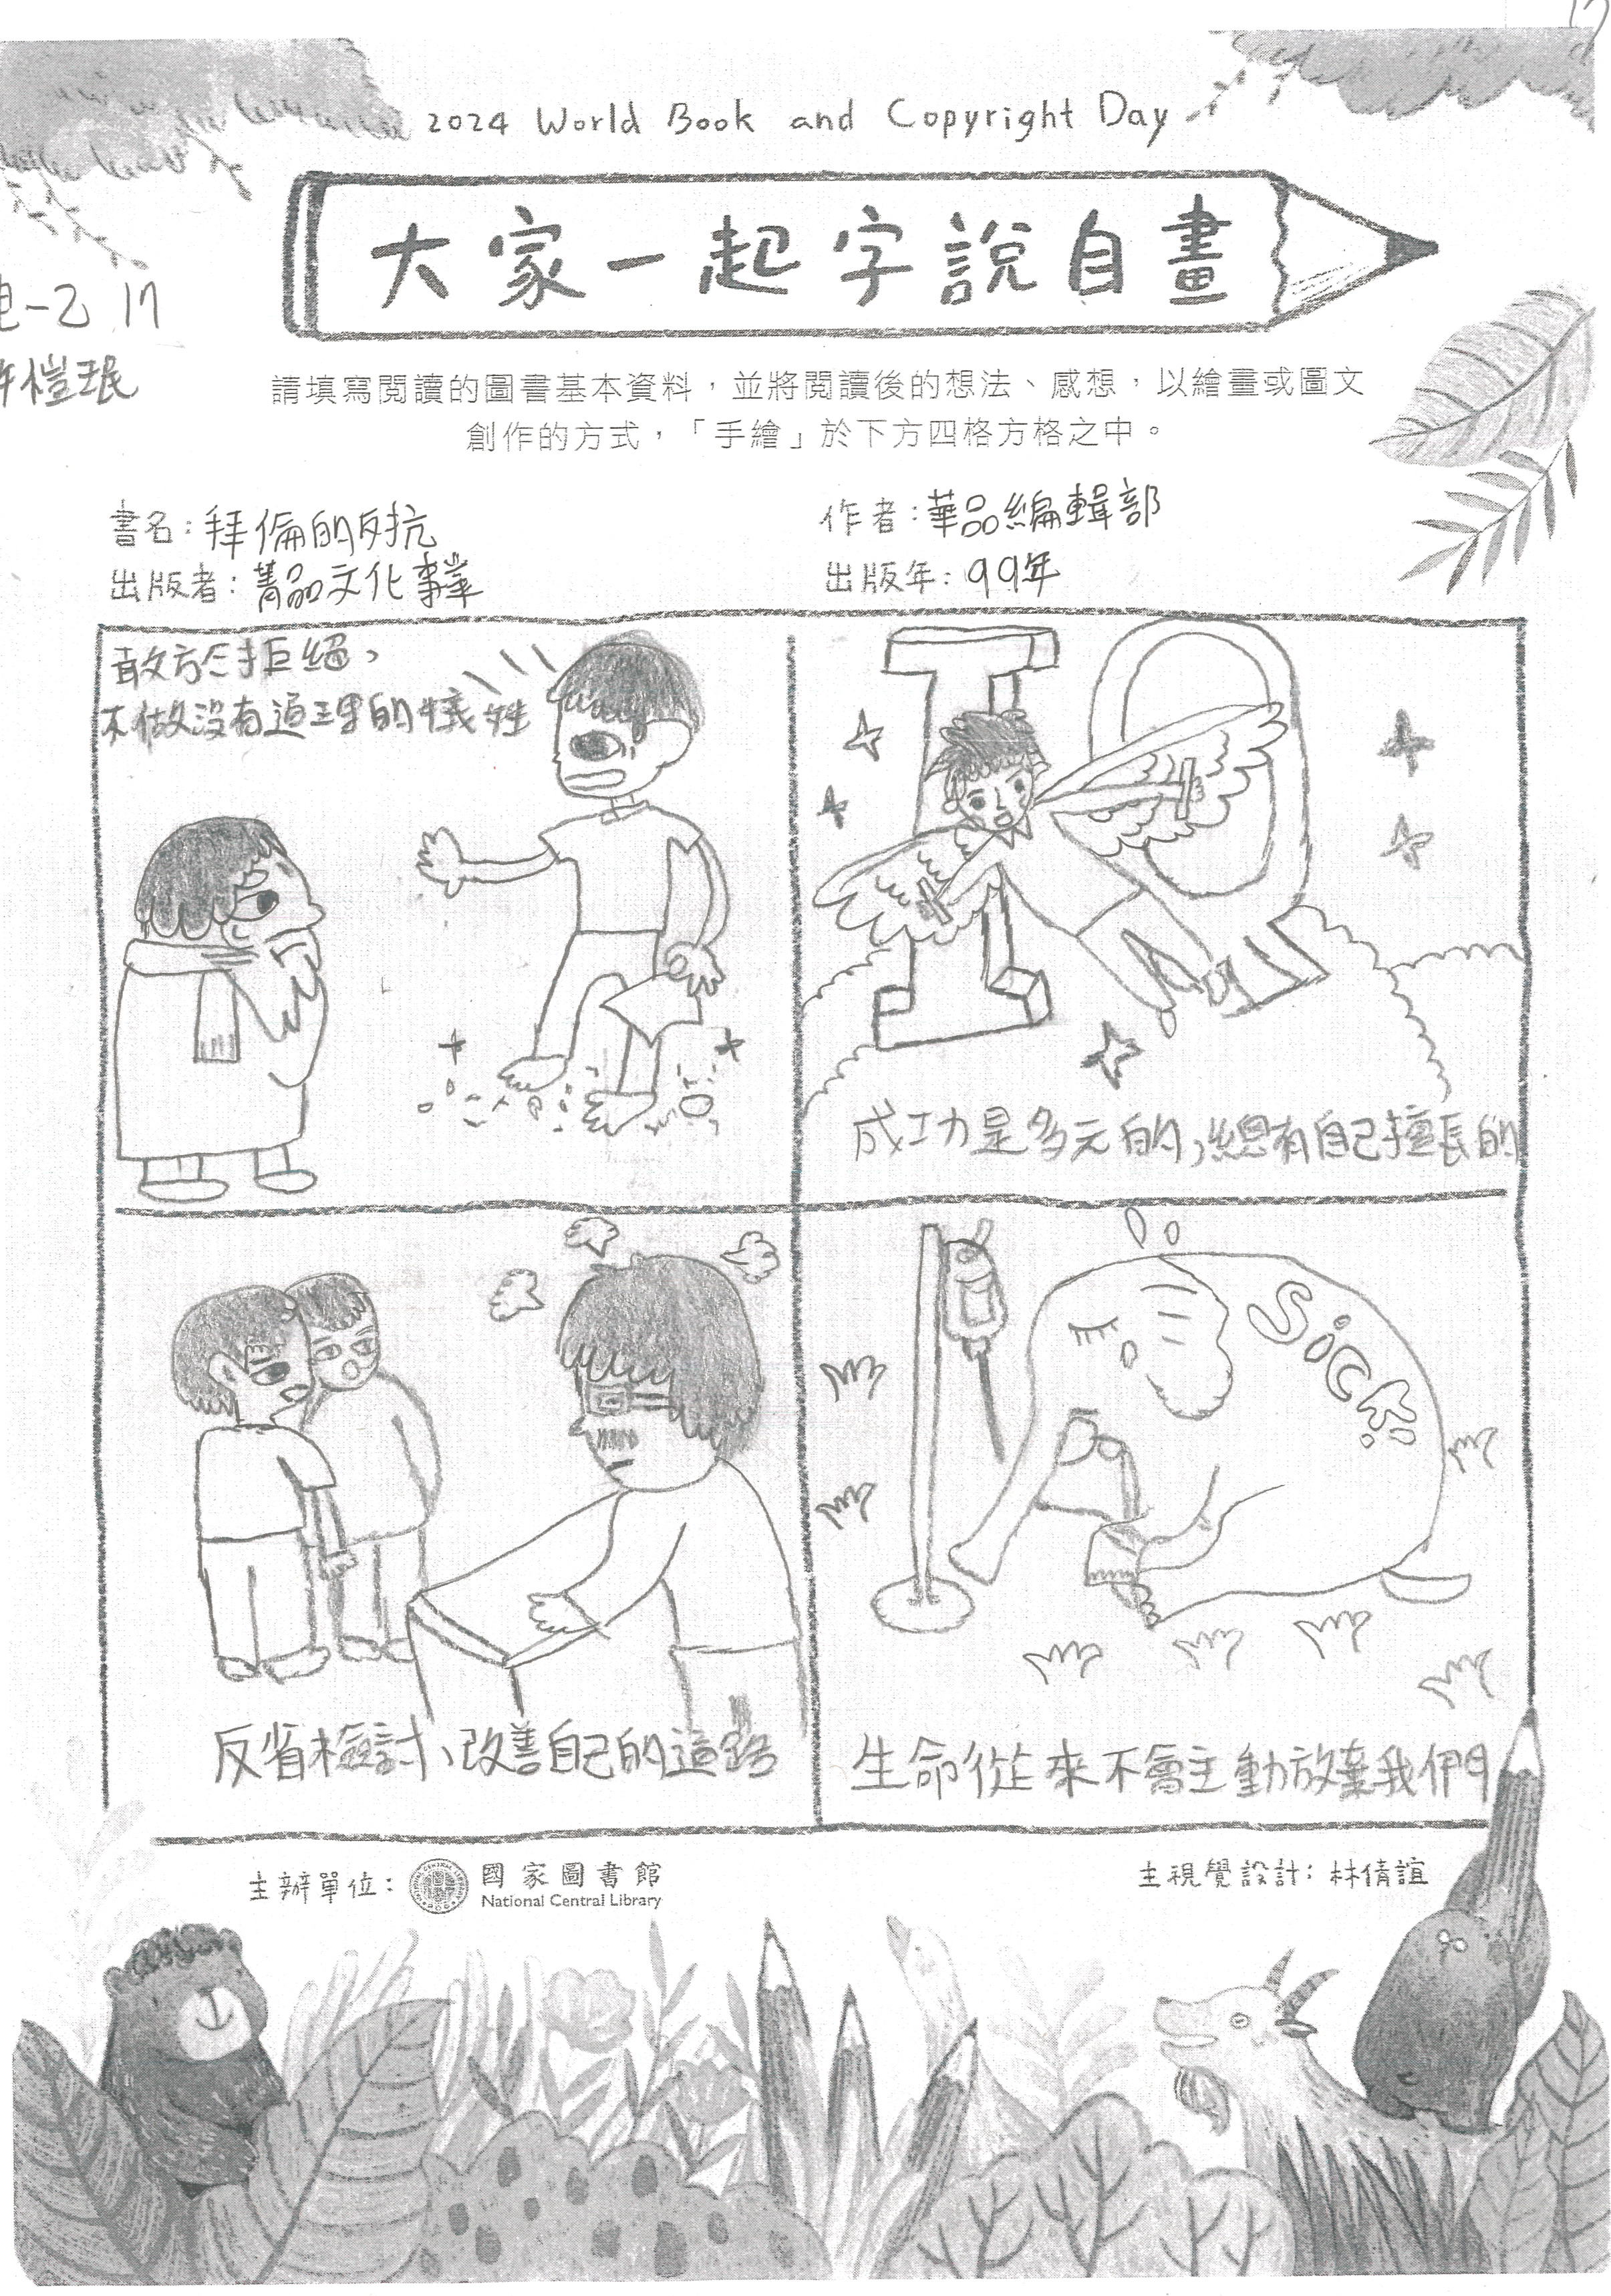 2024 World Book and Copyright Day
大家一起字說自畫
-乙 17
愷珉
請填寫閱讀的圖書基本資料，並將閱讀後的想法、感想，以繪畫或圖文
創作的方式，「手繪」於下方四格方格之中。
書名：拜倫的反抗
作者：華品編輯部
出版者：菁品文化事業
出版年：99年
敢於拒絕，
不做沒有道理的犧牲
IQ
成功是多元的，總有自己擅長的
反省檢討、改善自己的道路
Sick
生命從來不會主動放棄我們
主辦單位：國家圖書館
National Central Library
主視覺設計：林倩誼